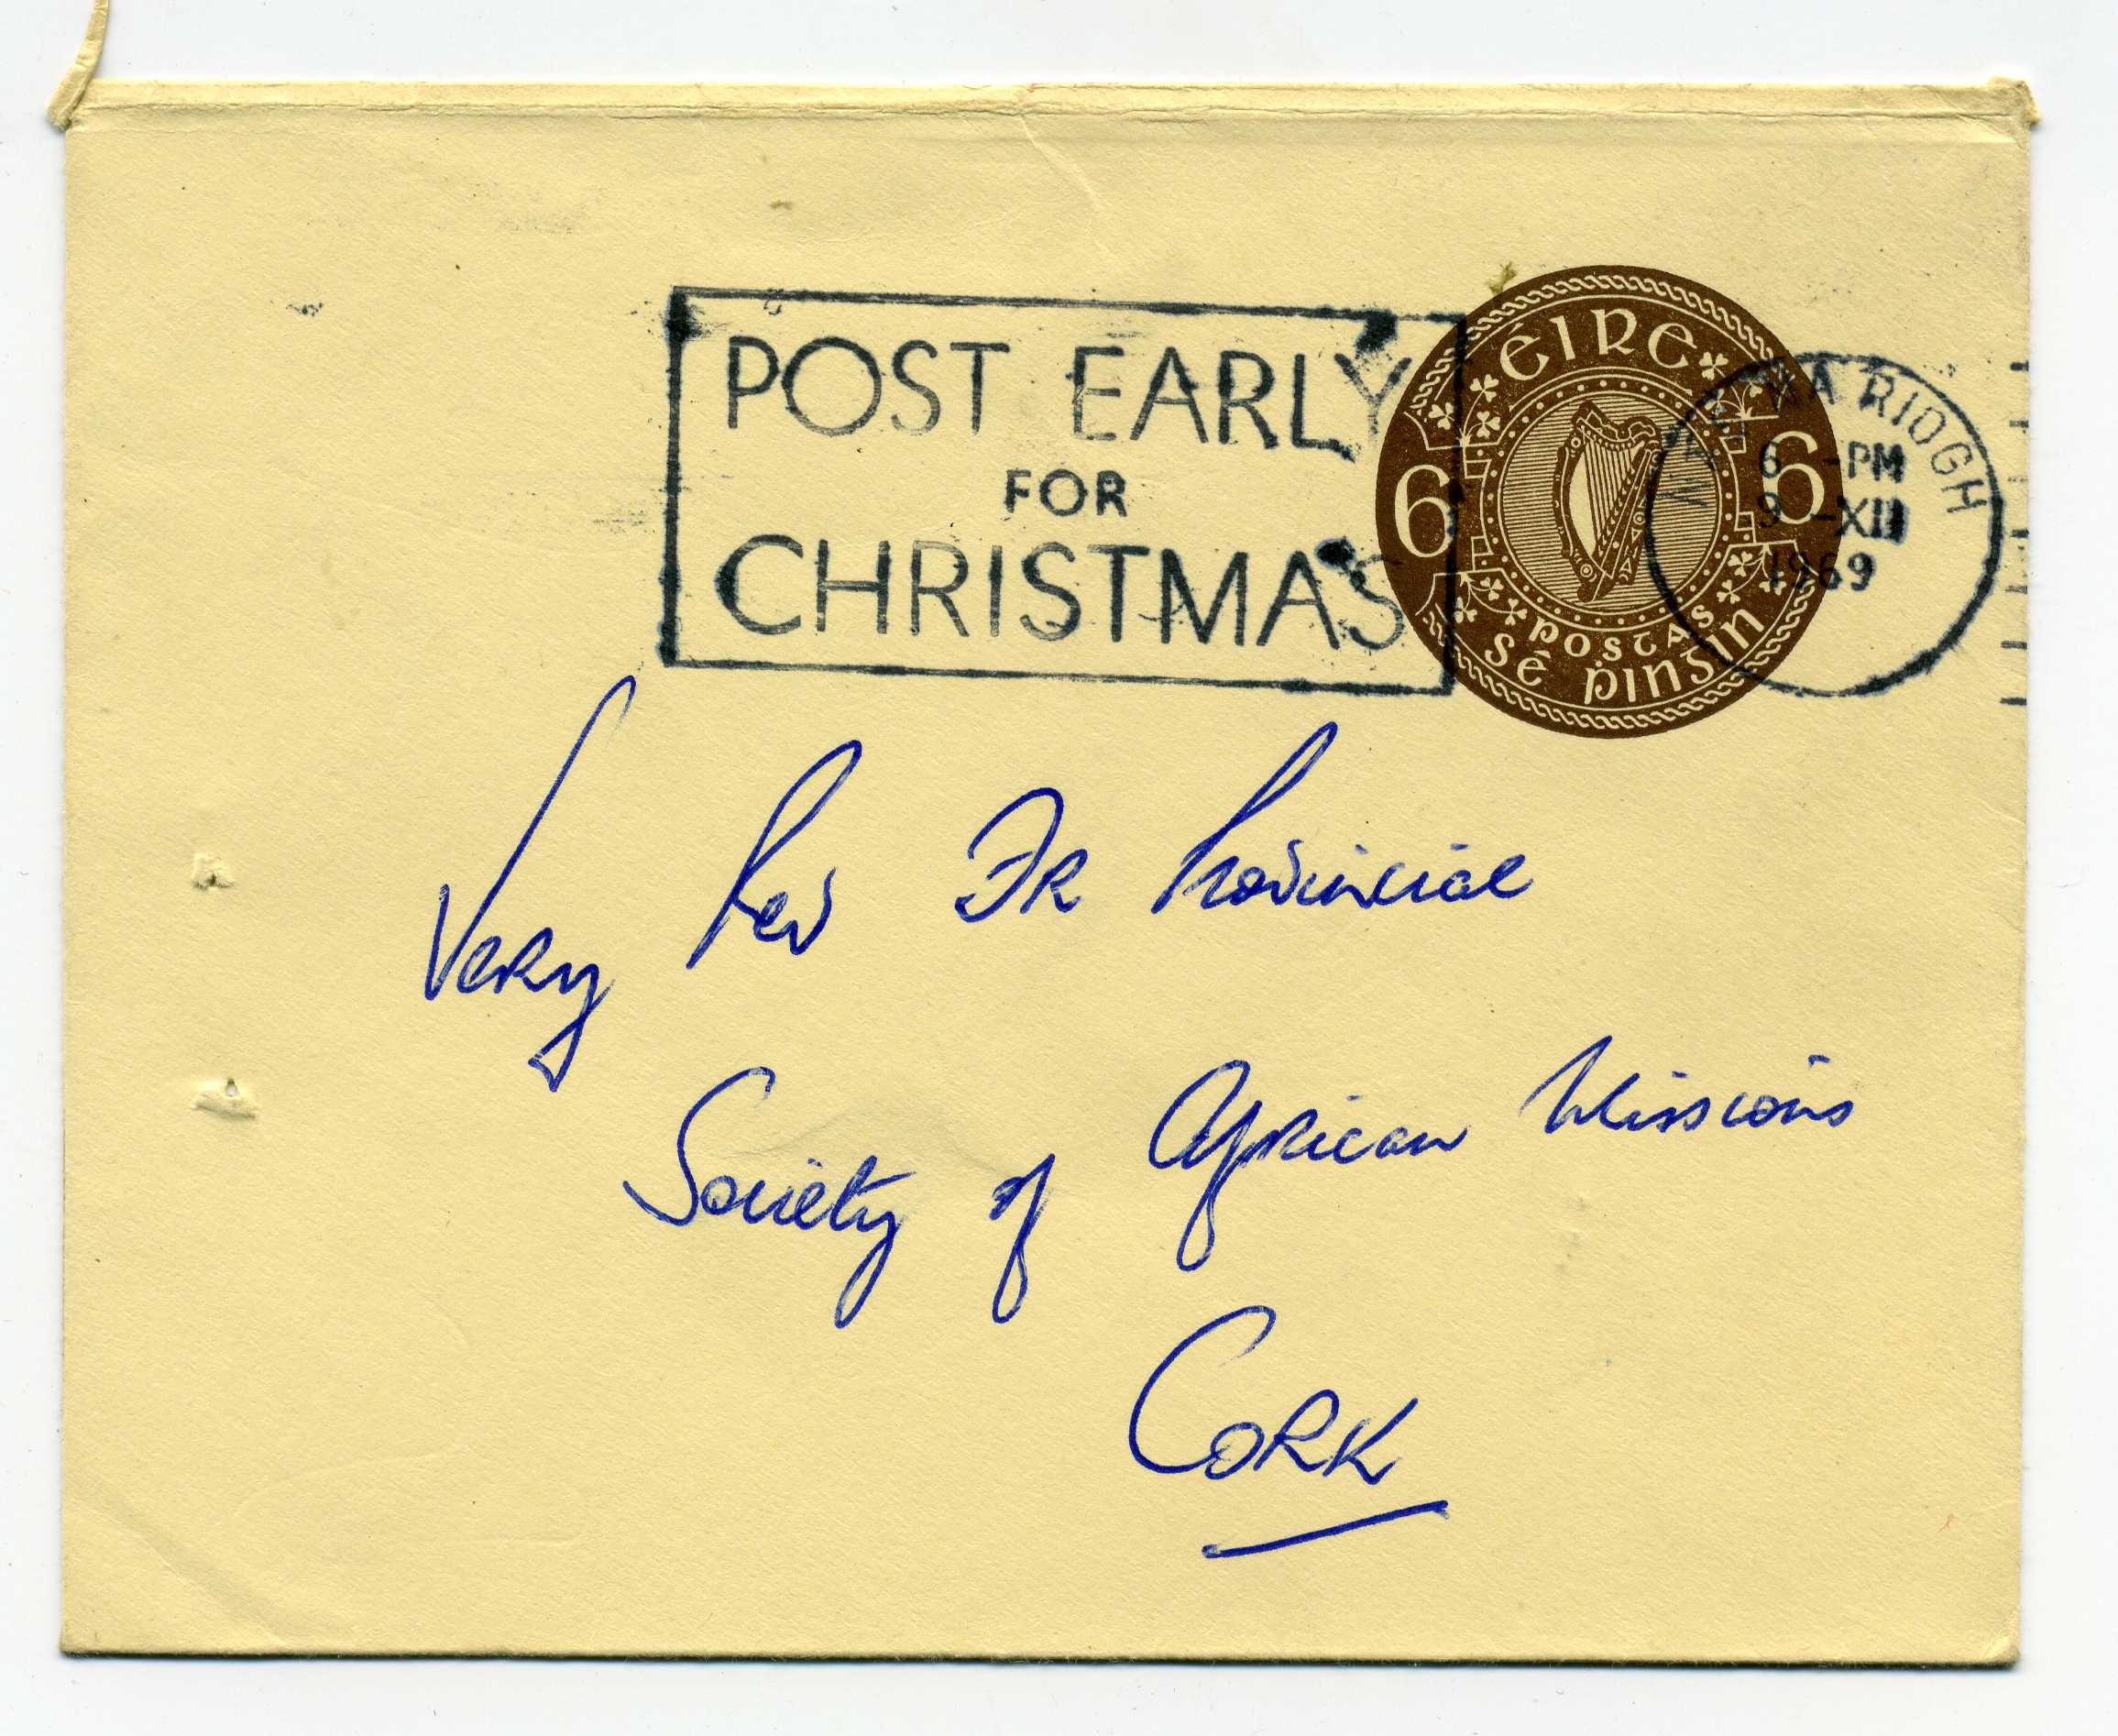 POST EARLY
FOR
CHRISTMAS
ÉIRE
6 6
POSTAS
SÉ PINGIN
6 -PM
9 -XII
1969
Very Rev Fr Provincial
Society of African Missions
CORK